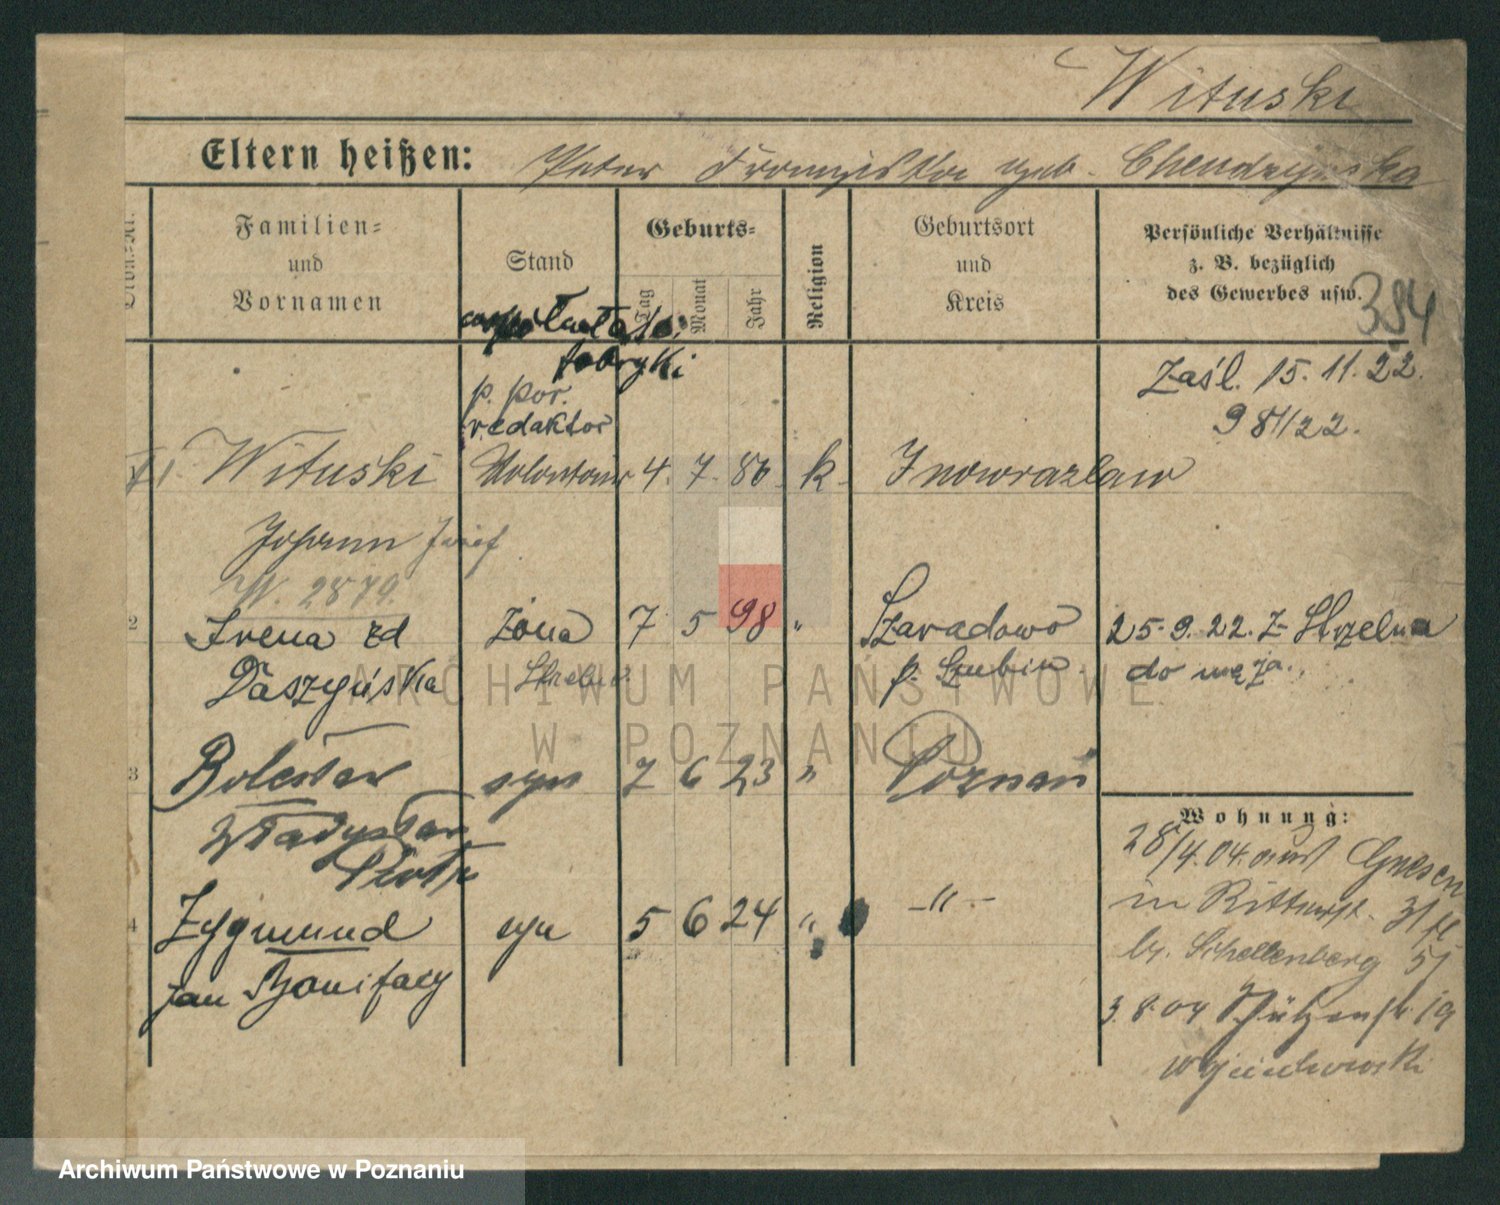 Wituski
Eltern heißen: Peter Franziska geb. Chendzynska
Familien= und Vornamen
Stand
Geburts=
Tag Monat Jahr
Religion
Geburtsort und Kreis
Persönliche Verhältnisse
z. B. bezüglich
des Gewerbes usw.
384
fabryki
p. por.
redaktor
Zaśl. 15. 11. 22.
98/1/22.
1 Wituski Volontair 4. 7. 86. k. Inowrazlaw
Johann Józef
W. 2879.
2 Irena zd żona 7 5 98 " Szaradowo 25. 9. 22. z Strzelna
Daszyńska p. Szubin do męża.
3 Bolesław syn 7 6 23 " Poznań
Władysław
Piotr
4 Zygmund syn 5 6 24 " -"-
Jan Bonifacy
Wohnung:
28/4. 04. aus Gnesen
in Ritterstr. 31
b. Schellenberg
3. 8. 04 Schützenstr. 19
Wojciechowski
ARCHIWUM PAŃSTWOWE
W POZNANIU
Archiwum Państwowe w Poznaniu